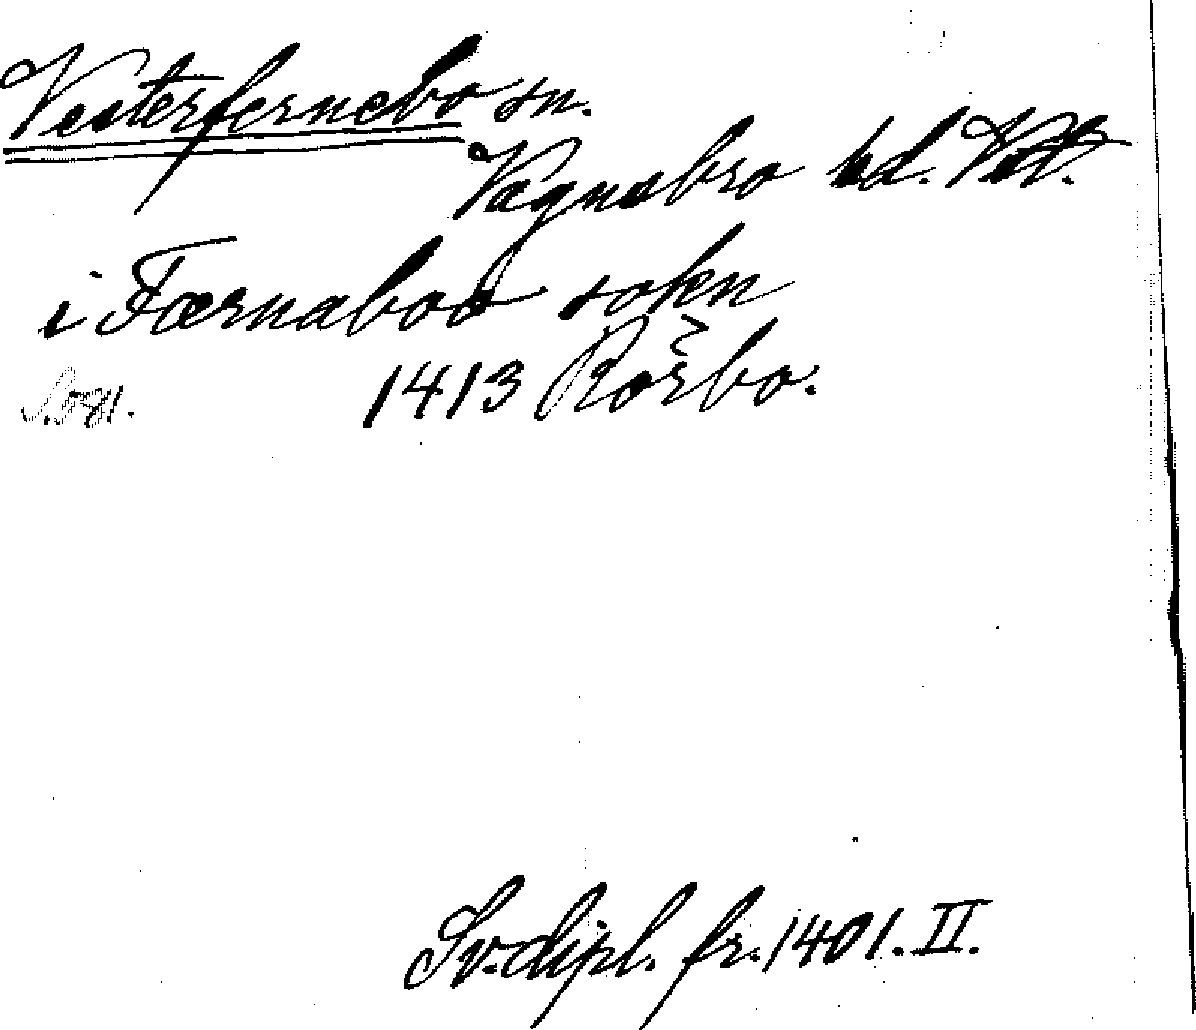 Vesterfernebo sn.
Vagnsbro hd. Vstm.
i Færnaboo sokn
1413 Rörbo.
Sv. dipl. fr. 1401. II.